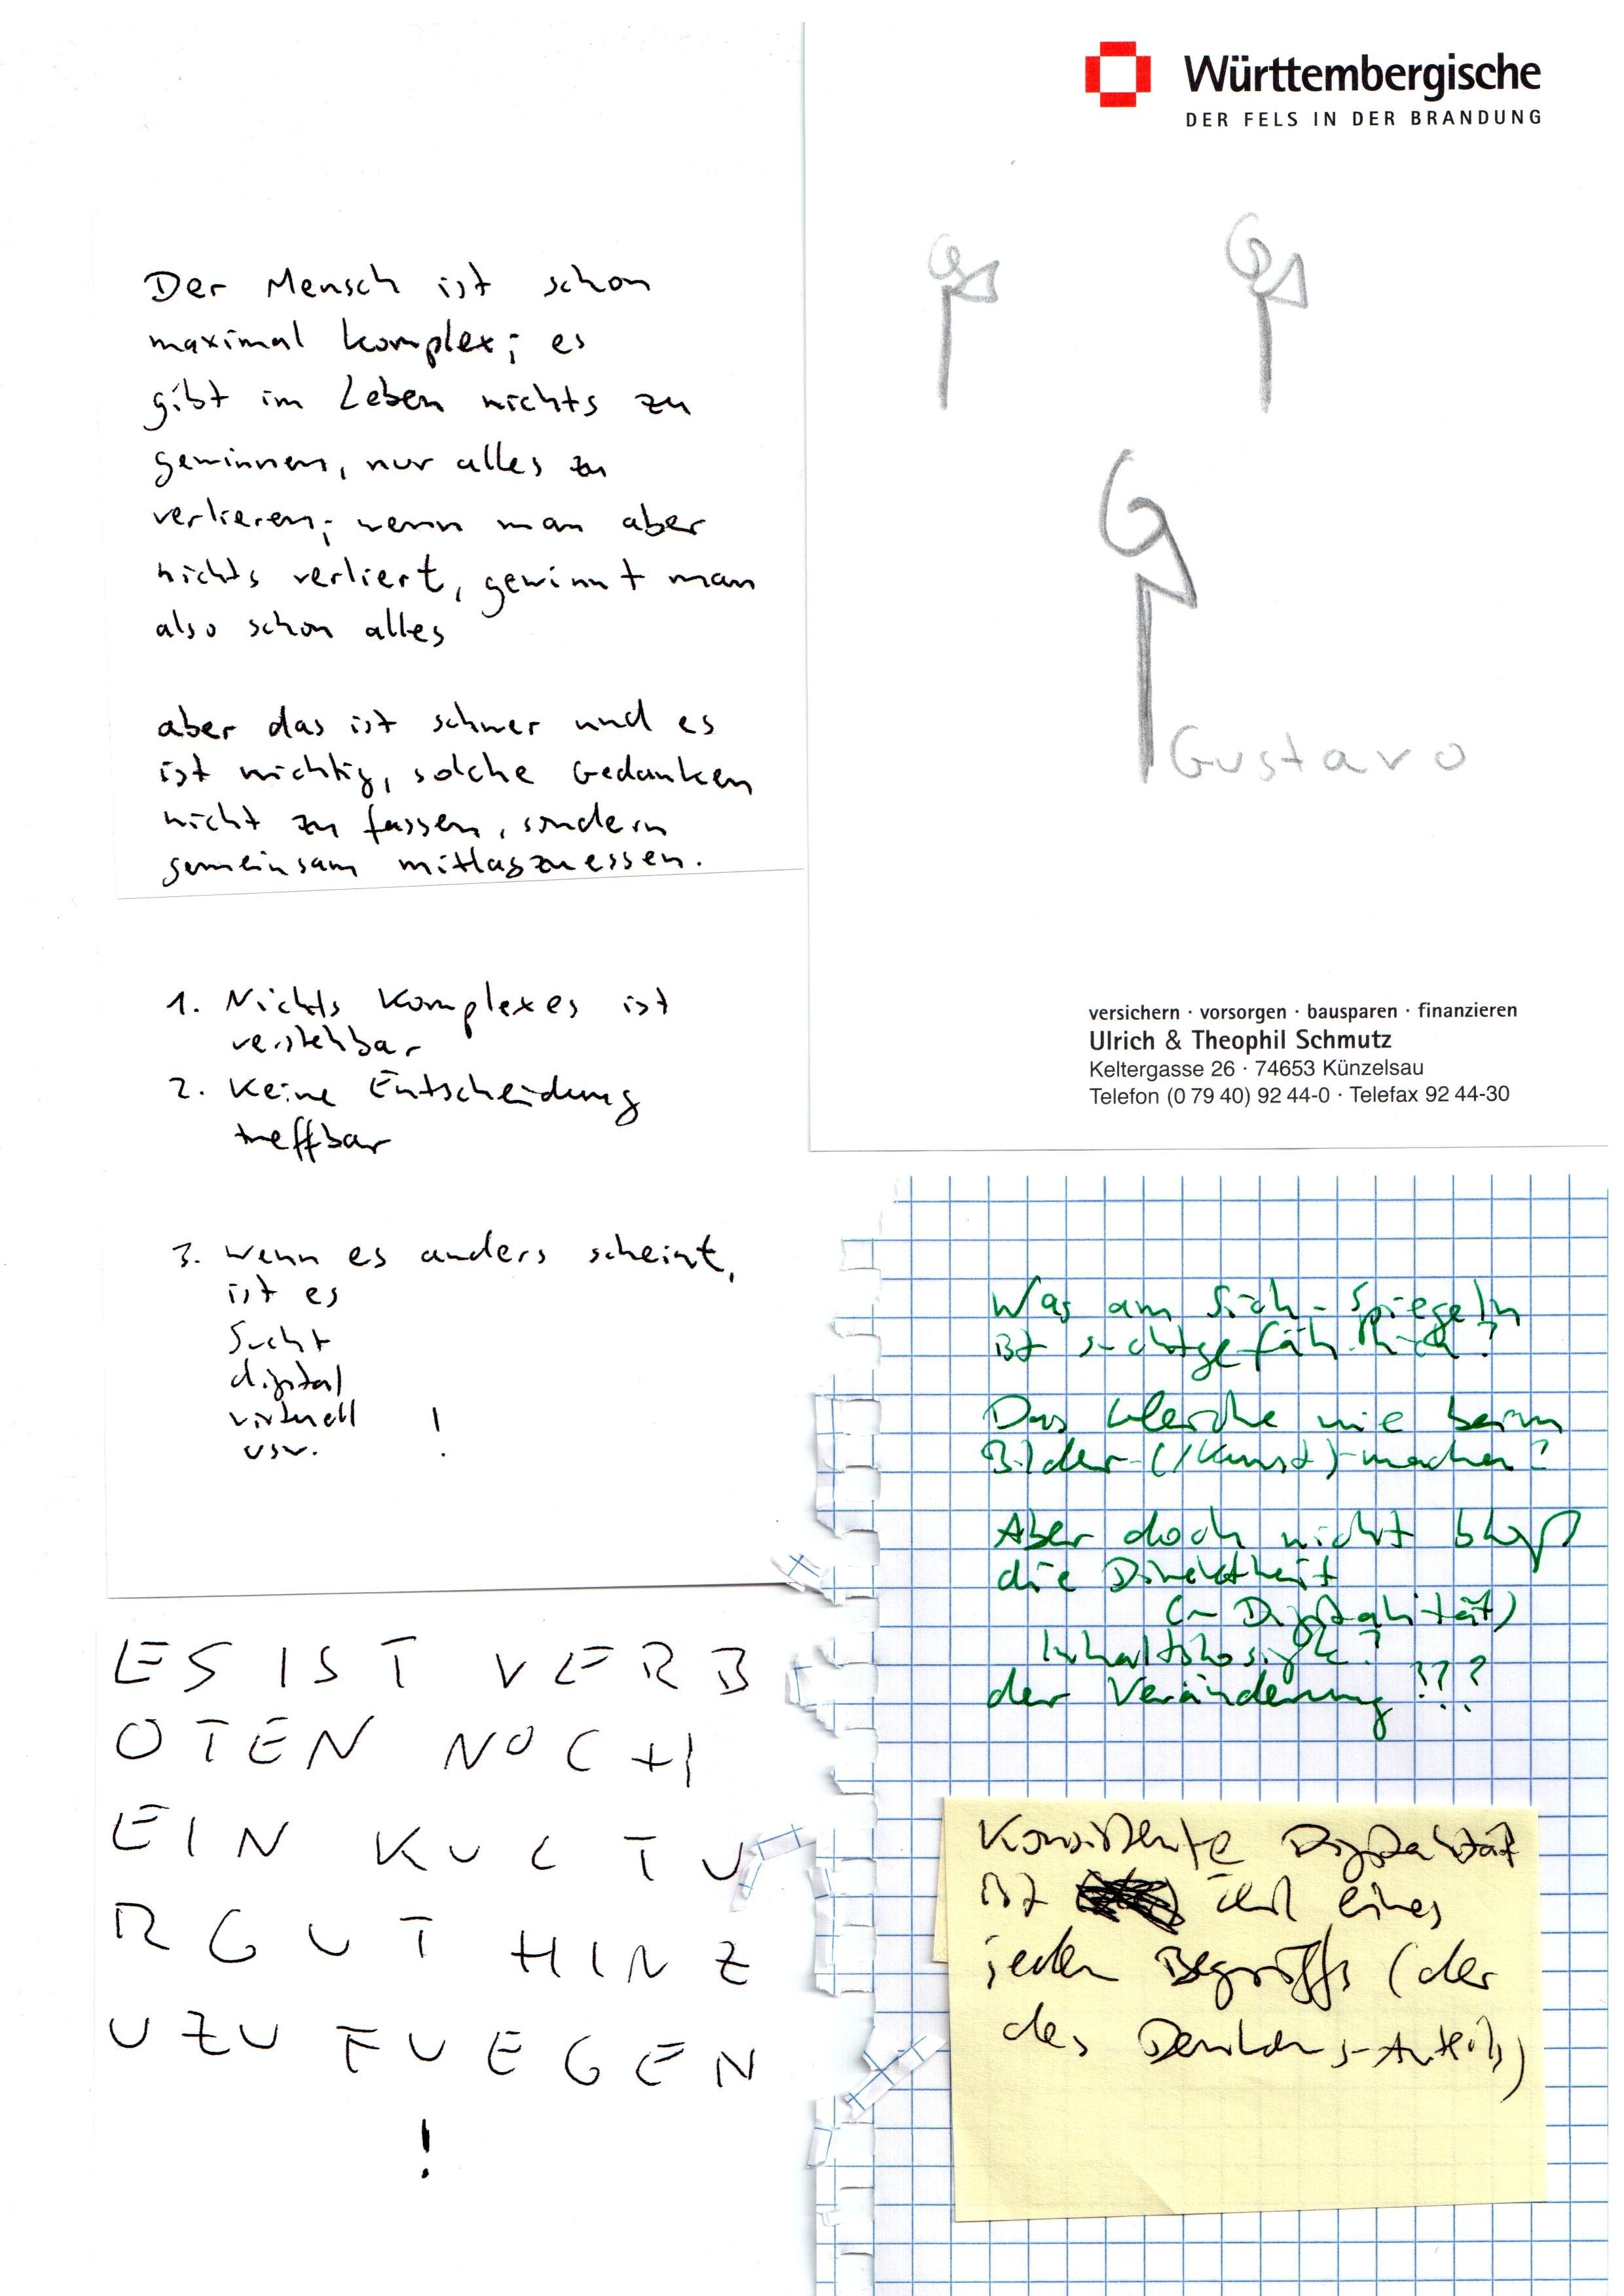 Der Mensch ist schon
maximal komplex; es
gibt im Leben nichts zu
gewinnen, nur alles zu
verlieren; wenn man aber
nichts verliert, gewinnt man
also schon alles
aber das ist schwer und es
ist wichtig, solche Gedanken
nicht zu fassen, sondern
gemeinsam mittagzuessen.
1. Nichts Komplexes ist
verstehbar
2. Keine Entscheidung
treffbar
3. wenn es anders scheint,
ist es
Sucht
digital
virtuell !
usw.
ES IST VERB
OTEN NOCH
EIN KULTU
RGUT HINZ
UZUFUEGEN
!
Württembergische
DER FELS IN DER BRANDUNG
Gustavo
versichern · vorsorgen · bausparen · finanzieren
Ulrich & Theophil Schmutz
Keltergasse 26 · 74653 Künzelsau
Telefon (0 79 40) 92 44-0 · Telefax 92 44-30
Was am Sich-Spiegeln
ist suchtgefährlich?
Das Gleiche wie beim
Bilder-(/Kunst)-machen?
Aber doch nicht bloß
die Direktheit
(~ Digitalität)
Inhaltslosigk.?
der Veränderung ???
Konsistente Digitalität
ist eines
jeden Begriffs (der
des Denkens-Anteils)